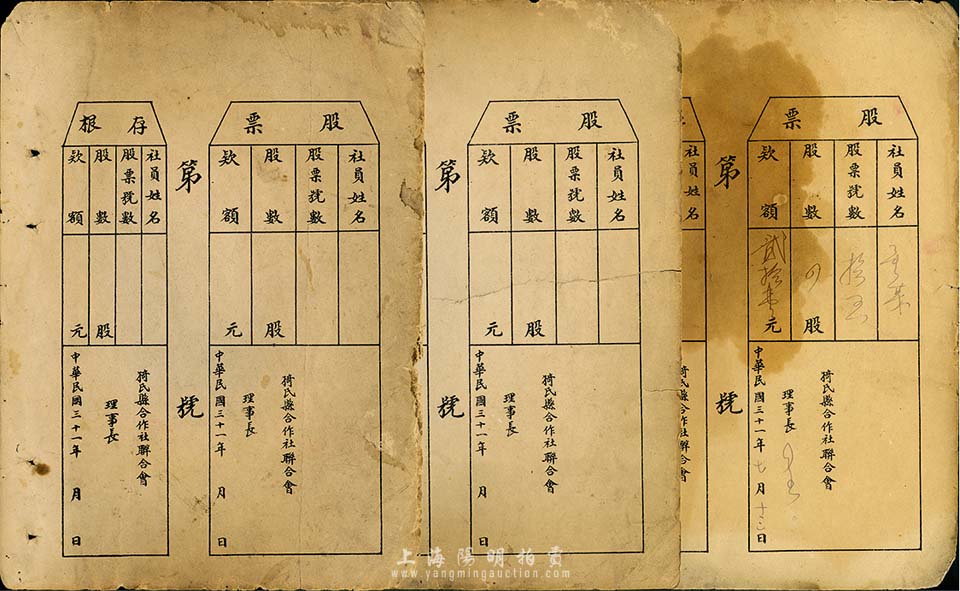 存根
社員姓名
股票號數
股數
股
欵額
元
猗氏縣合作社聯合會
理事長
中華民國三十一年 月 日
第 號
股票
社員姓名
股票號數
股數
股
欵額
元
猗氏縣合作社聯合會
理事長
中華民國三十一年 月 日
第 號
股票
社員姓名
股票號數
股數
股
欵額
元
猗氏縣合作社聯合會
理事長
中華民國三十一年 月 日
社員姓名
第 號
股票
社員姓名
股票號數
拾五
股數
股
欵額
元
猗氏縣合作社聯合會
理事長
中華民國三十一年七月十二日
上海陽明拍賣
www.yangmingauction.com